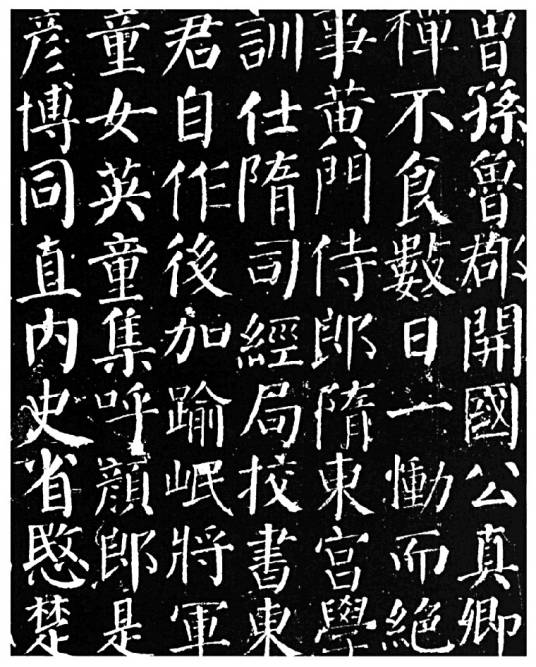 曾孫魯郡開國公真卿
禪不食數日一慟而絕
事黃門侍郎隋東宮學
訓仕隋司經局挍書東
君自作後加踰岷將軍
童女英童集呼顏郎是
彦博同直内史省愍楚